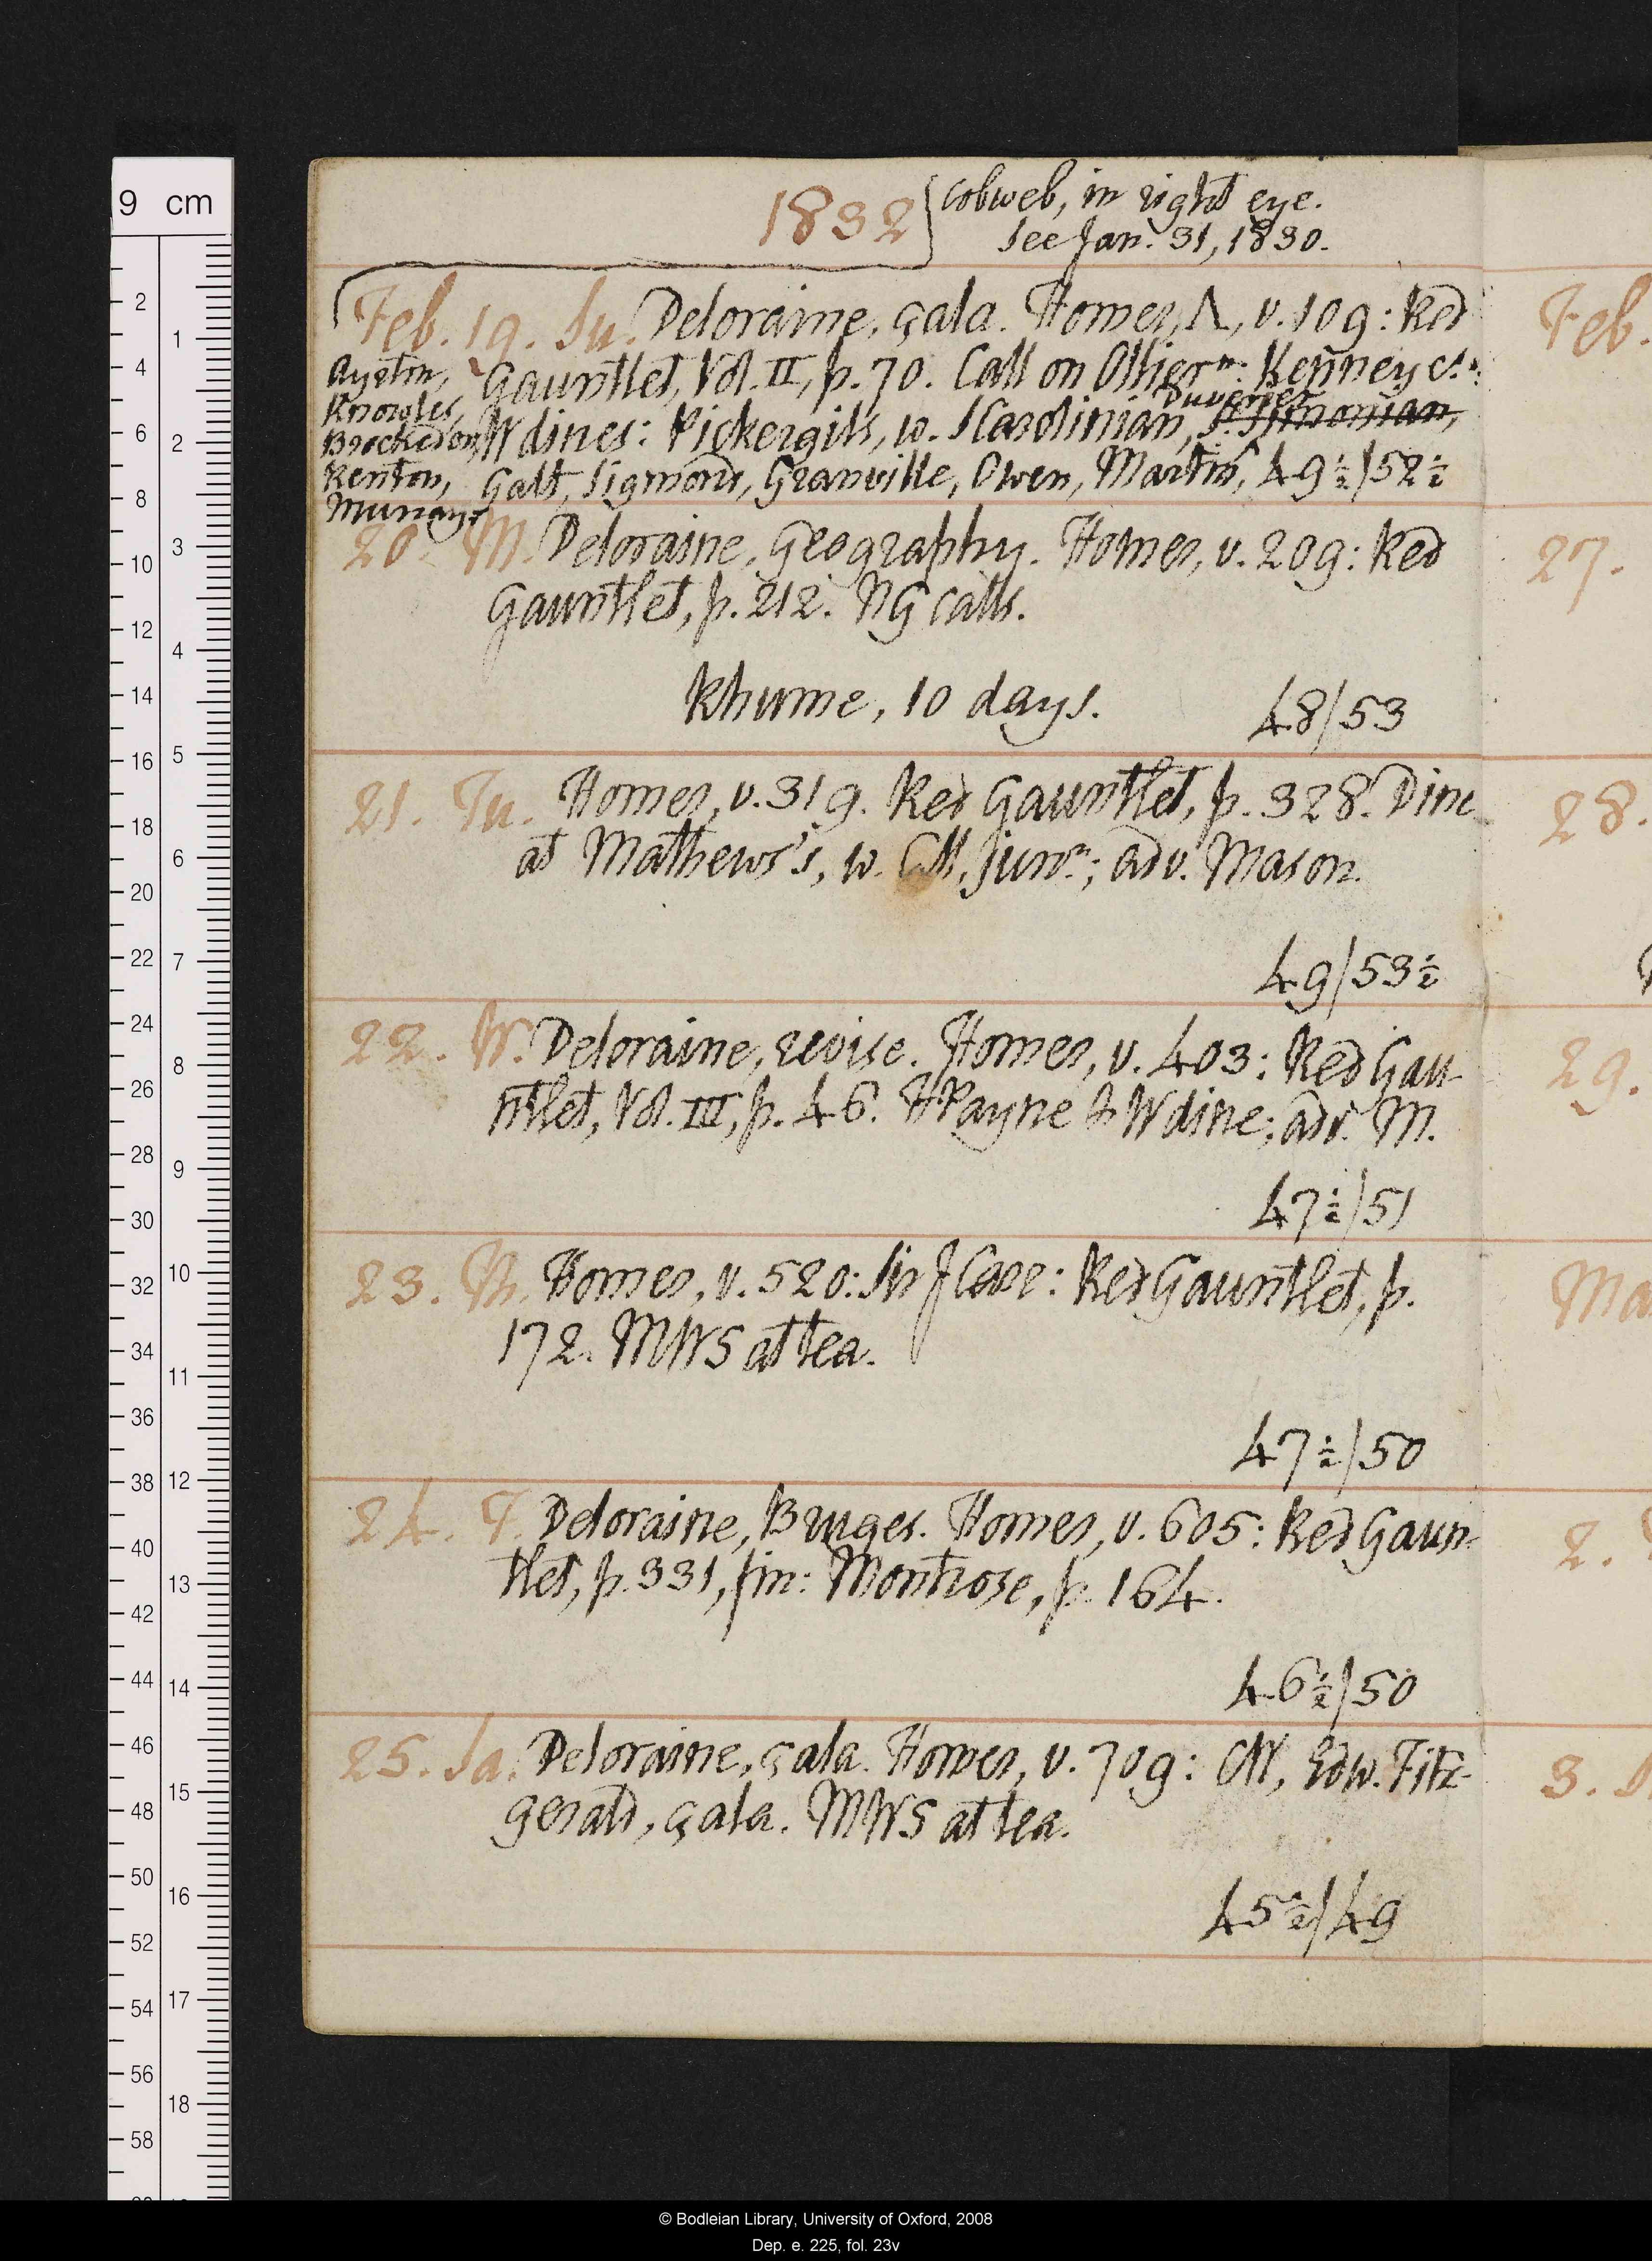 9 cm
1832
Cobweb, in right eye.
See Jan. 31, 1830.
Feb. 19. Su. Deloraine, çala. Homer, Λ, v. 109: Red
Gauntlet, Vol. II, p. 70. Call on Ollier n: Kenney c.n:
Duverger
W dines: Pickersgils, w. SCarolinian, S. Simonian,
Galt, Sigmond, Granville, Owen, Martins, 49½/52½
Ayston,
Knowles,
Brockedon,
Kenton,
Murrays
20. M. Deloraine, Geography. Homer, v. 209: Red
Gauntlet, p. 212. NG calls.
Rhume, 10 days. 48/53
21. Tu. Homer, v. 319. Red Gauntlet, p. 328. Dine
at Mathews's, w. CM, junr.; adv. Mason.
49/53½
22. W. Deloraine, revise. Homer, v. 403: Red Gau-
ntlet, Vol. III, p. 46. HPayne & W dine; adv. M.
47½/51
23. Th. Homer, v. 520: Sir J Case: Red Gauntlet, p.
172. MWS at tea.
47½/50
24. F. Deloraine, Bruges. Homer, v. 605: Red Gaun-
tlet, p. 331, fin: Montrose, p. 164.
46½/50
25. Sa. Deloraine, çala. Homer, v. 709: CW, Edw. Fitz-
gerald, çala. MWS at tea.
45½/49
Feb.
27.
28.
29.
Ma
2.
3.
2 4 6 8 10 12 14 16 18 20 22 24 26 28 30 32 34 36 38 40 42 44 46 48 50 52 54 56 58
1 2 3 4 5 6 7 8 9 10 11 12 13 14 15 16 17 18
© Bodleian Library, University of Oxford, 2008
Dep. e. 225, fol. 23v